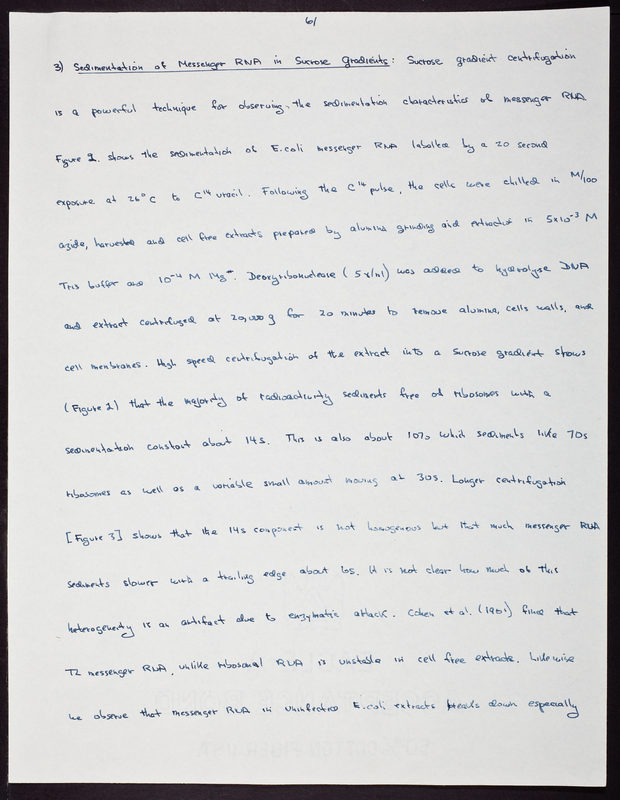 6/
3) Sedimentation of Messenger RNA in Sucrose Gradients: Sucrose gradient centrifugation
is a powerful technique for observing the sedimentation characteristics of messenger RNA
Figure 2. shows the sedimentation of E.coli messenger RNA labelled by a 20 second
exposure at 26° C to C14 uracil. Following the C14 pulse, the cells were chilled in M/100
azide, harvested and cell free extracts prepared by alumina grinding and extraction in 5x10-3 M
Tris buffer and 10-4 M Mg++. Deoxyribonuclease (5 γ/ml) was added to hydrolyse DNA
and extract centrifuged at 20,000 g for 20 minutes to remove alumina, cells walls, and
cell membranes. High speed centrifugation of the extract into a sucrose gradient shows
(Figure 2) that the majority of radioactivity sediments free of ribosomes with a
sedimentation constant about 14s. This is also about 10% which sediments like 70s
ribosomes as well as a variable small amount moving at 30s. Longer centrifugation
[Figure 3] shows that the 14s component is not homogenous but that much messenger RNA
sediments slower with a trailing edge about 6s. It is not clear how much of this
heterogeneity is an artifact due to enzymatic attack. Cohen et al. (1961) find that
T2 messenger RNA, unlike ribosomal RNA is unstable in cell free extracts. Likewise
we observe that messenger RNA in uninfected E.coli extracts breaks down especially